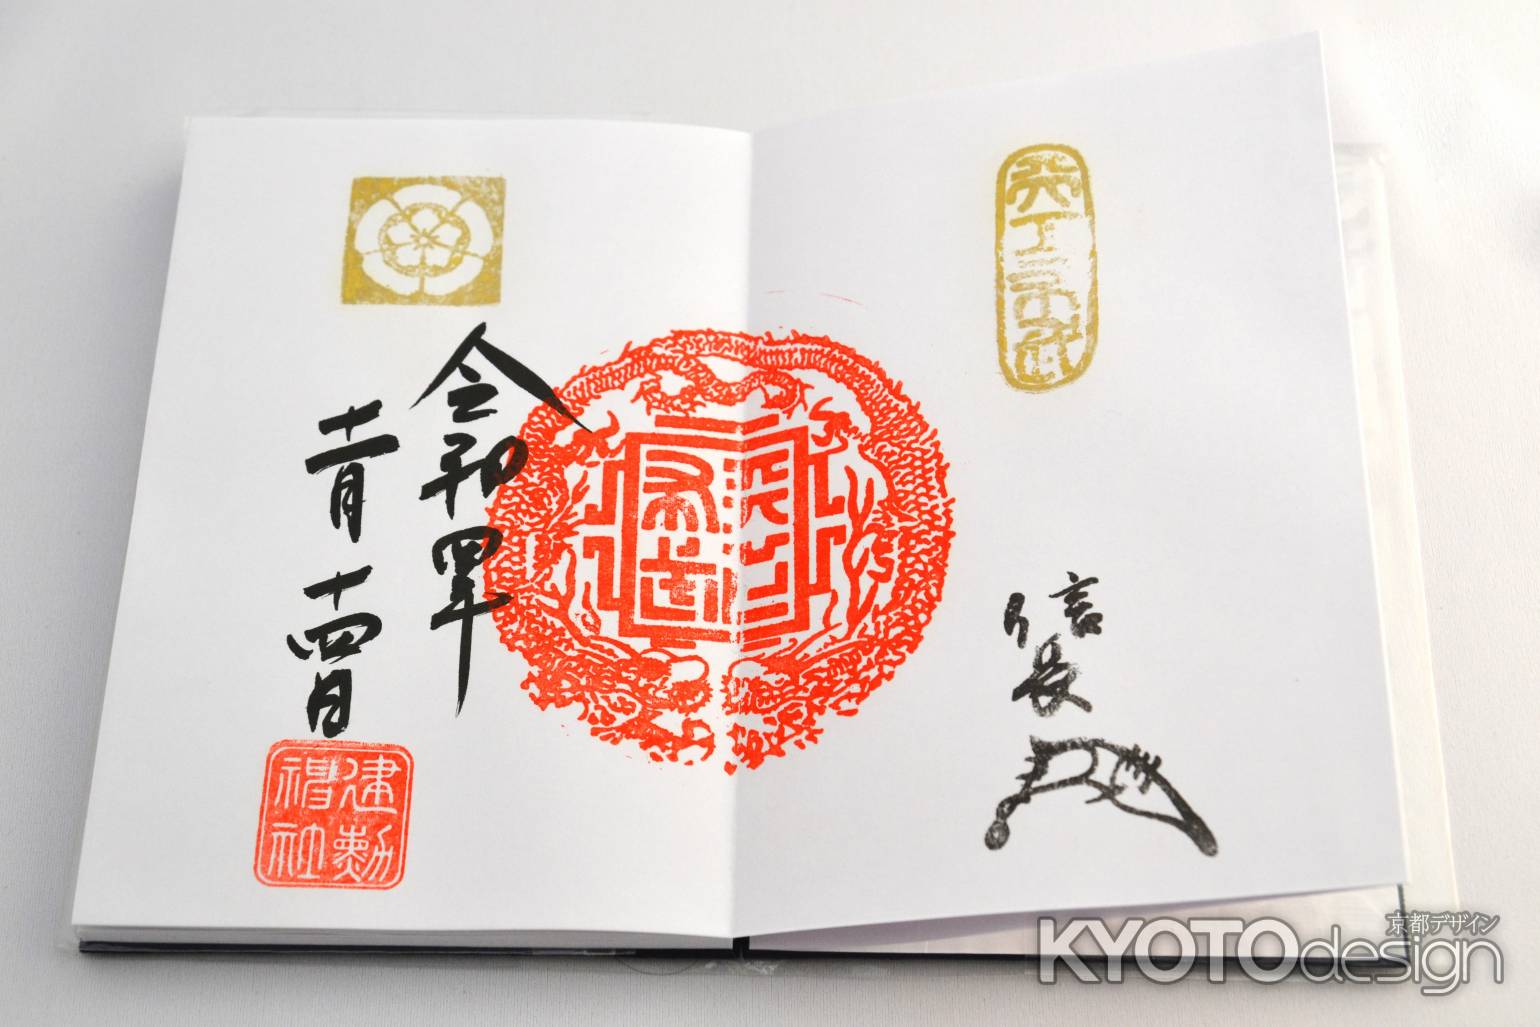 天下布武
信長
天下
布武
令和四年
十一月十四日
建勲
神社
京都デザイン
KYOTOdesign